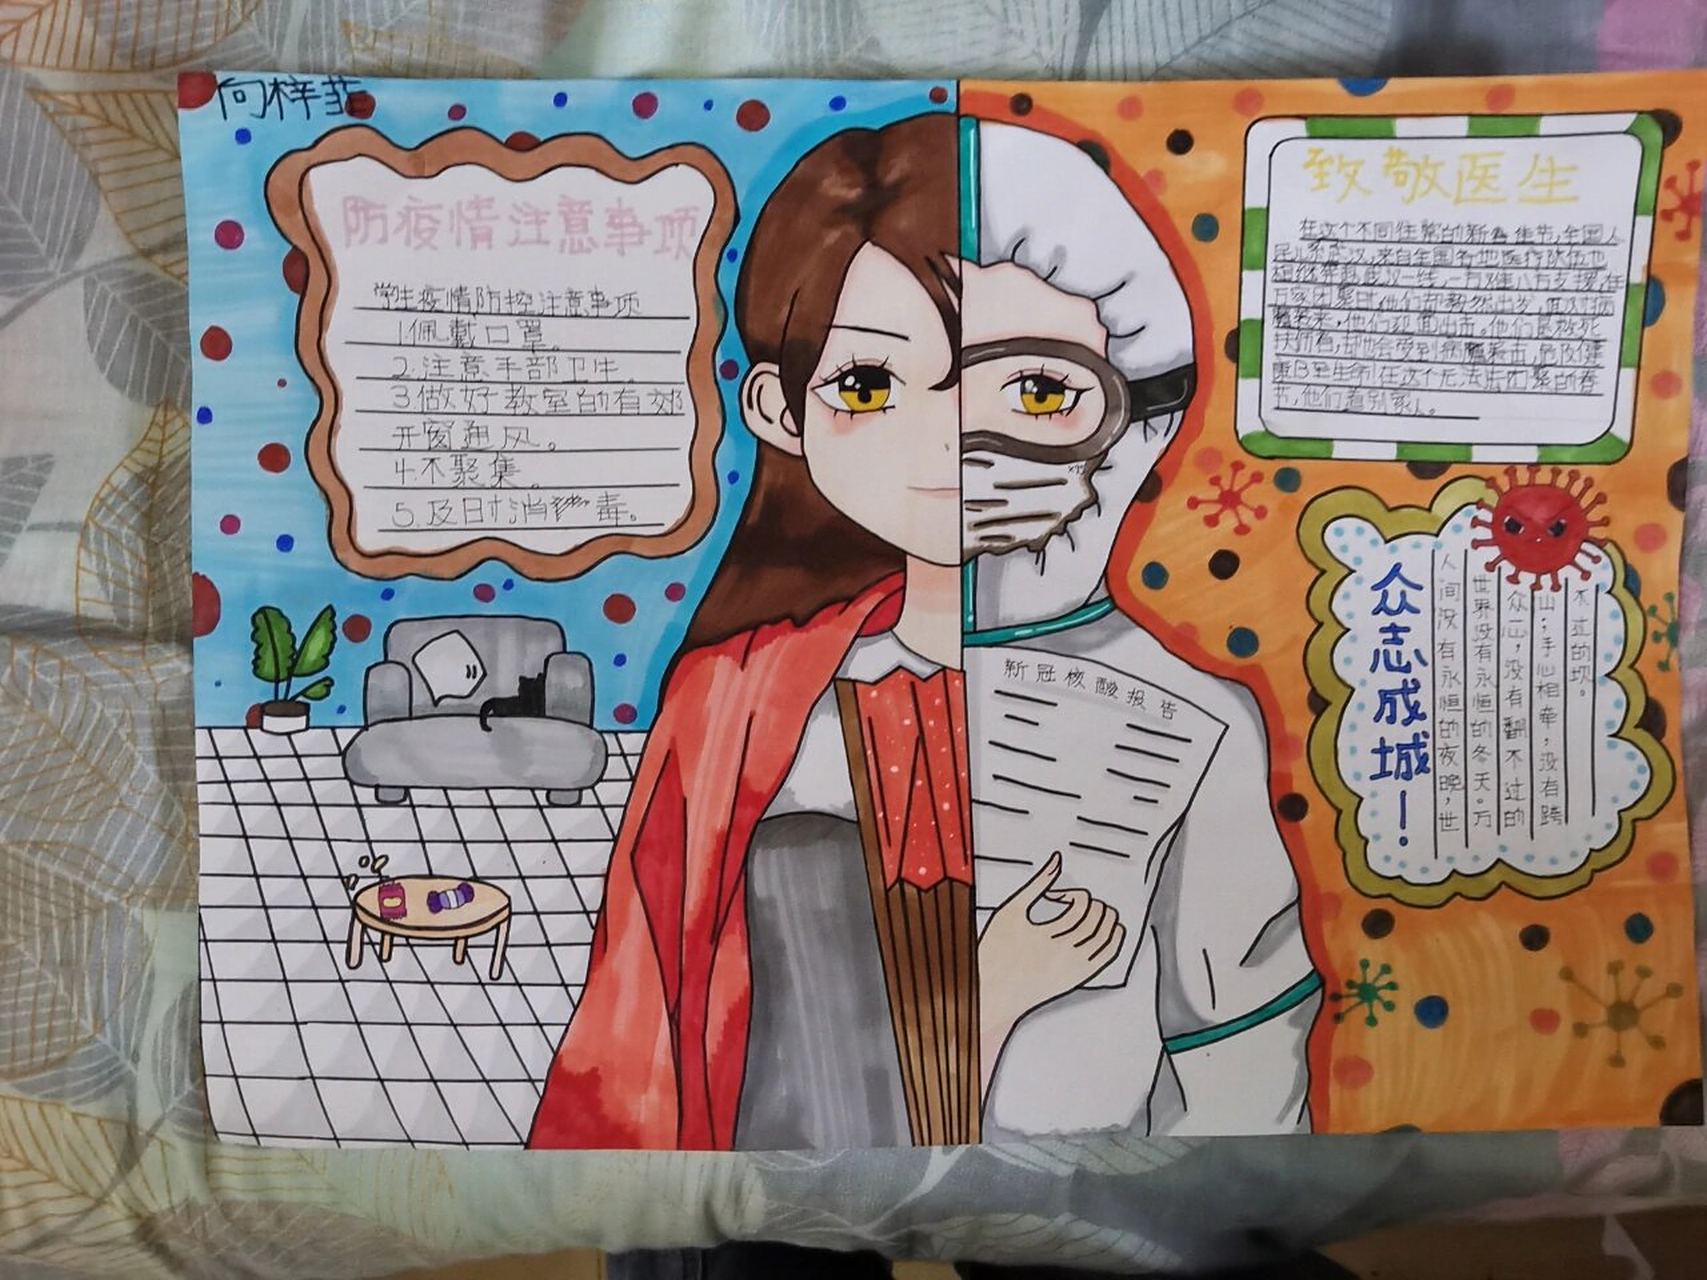 向梓菲
防疫情注意事项
学生疫情防控注意事项
1.佩戴口罩。
2.注意手部卫生。
3.做好教室的有郊
开窗通风。
4.不聚集。
5.及时消 毒。
致敬医生
在这个不同往常的新春佳节,全国人
民心系武汉,来自全国各地医疗队伍也
陆续奔赴武汉一线,一方难八方支援,在
万家团聚时他们却毅然出发,面对病
魔袭来,他们迎面出击。他们
扶伤,却也会受到病魔袭击,危及健
康甚至生命!在这个无法出团聚的春
节,他们告别家人。
新冠核酸报告
众志成城!
人间没有永恒的夜晚,世
世界没有永恒的冬天。万
众一心,没有翻不过的
山;手心相牵,没有跨
不过的坎。